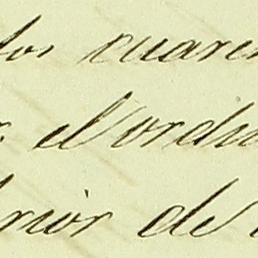 los cuaren
el ordin
rior de